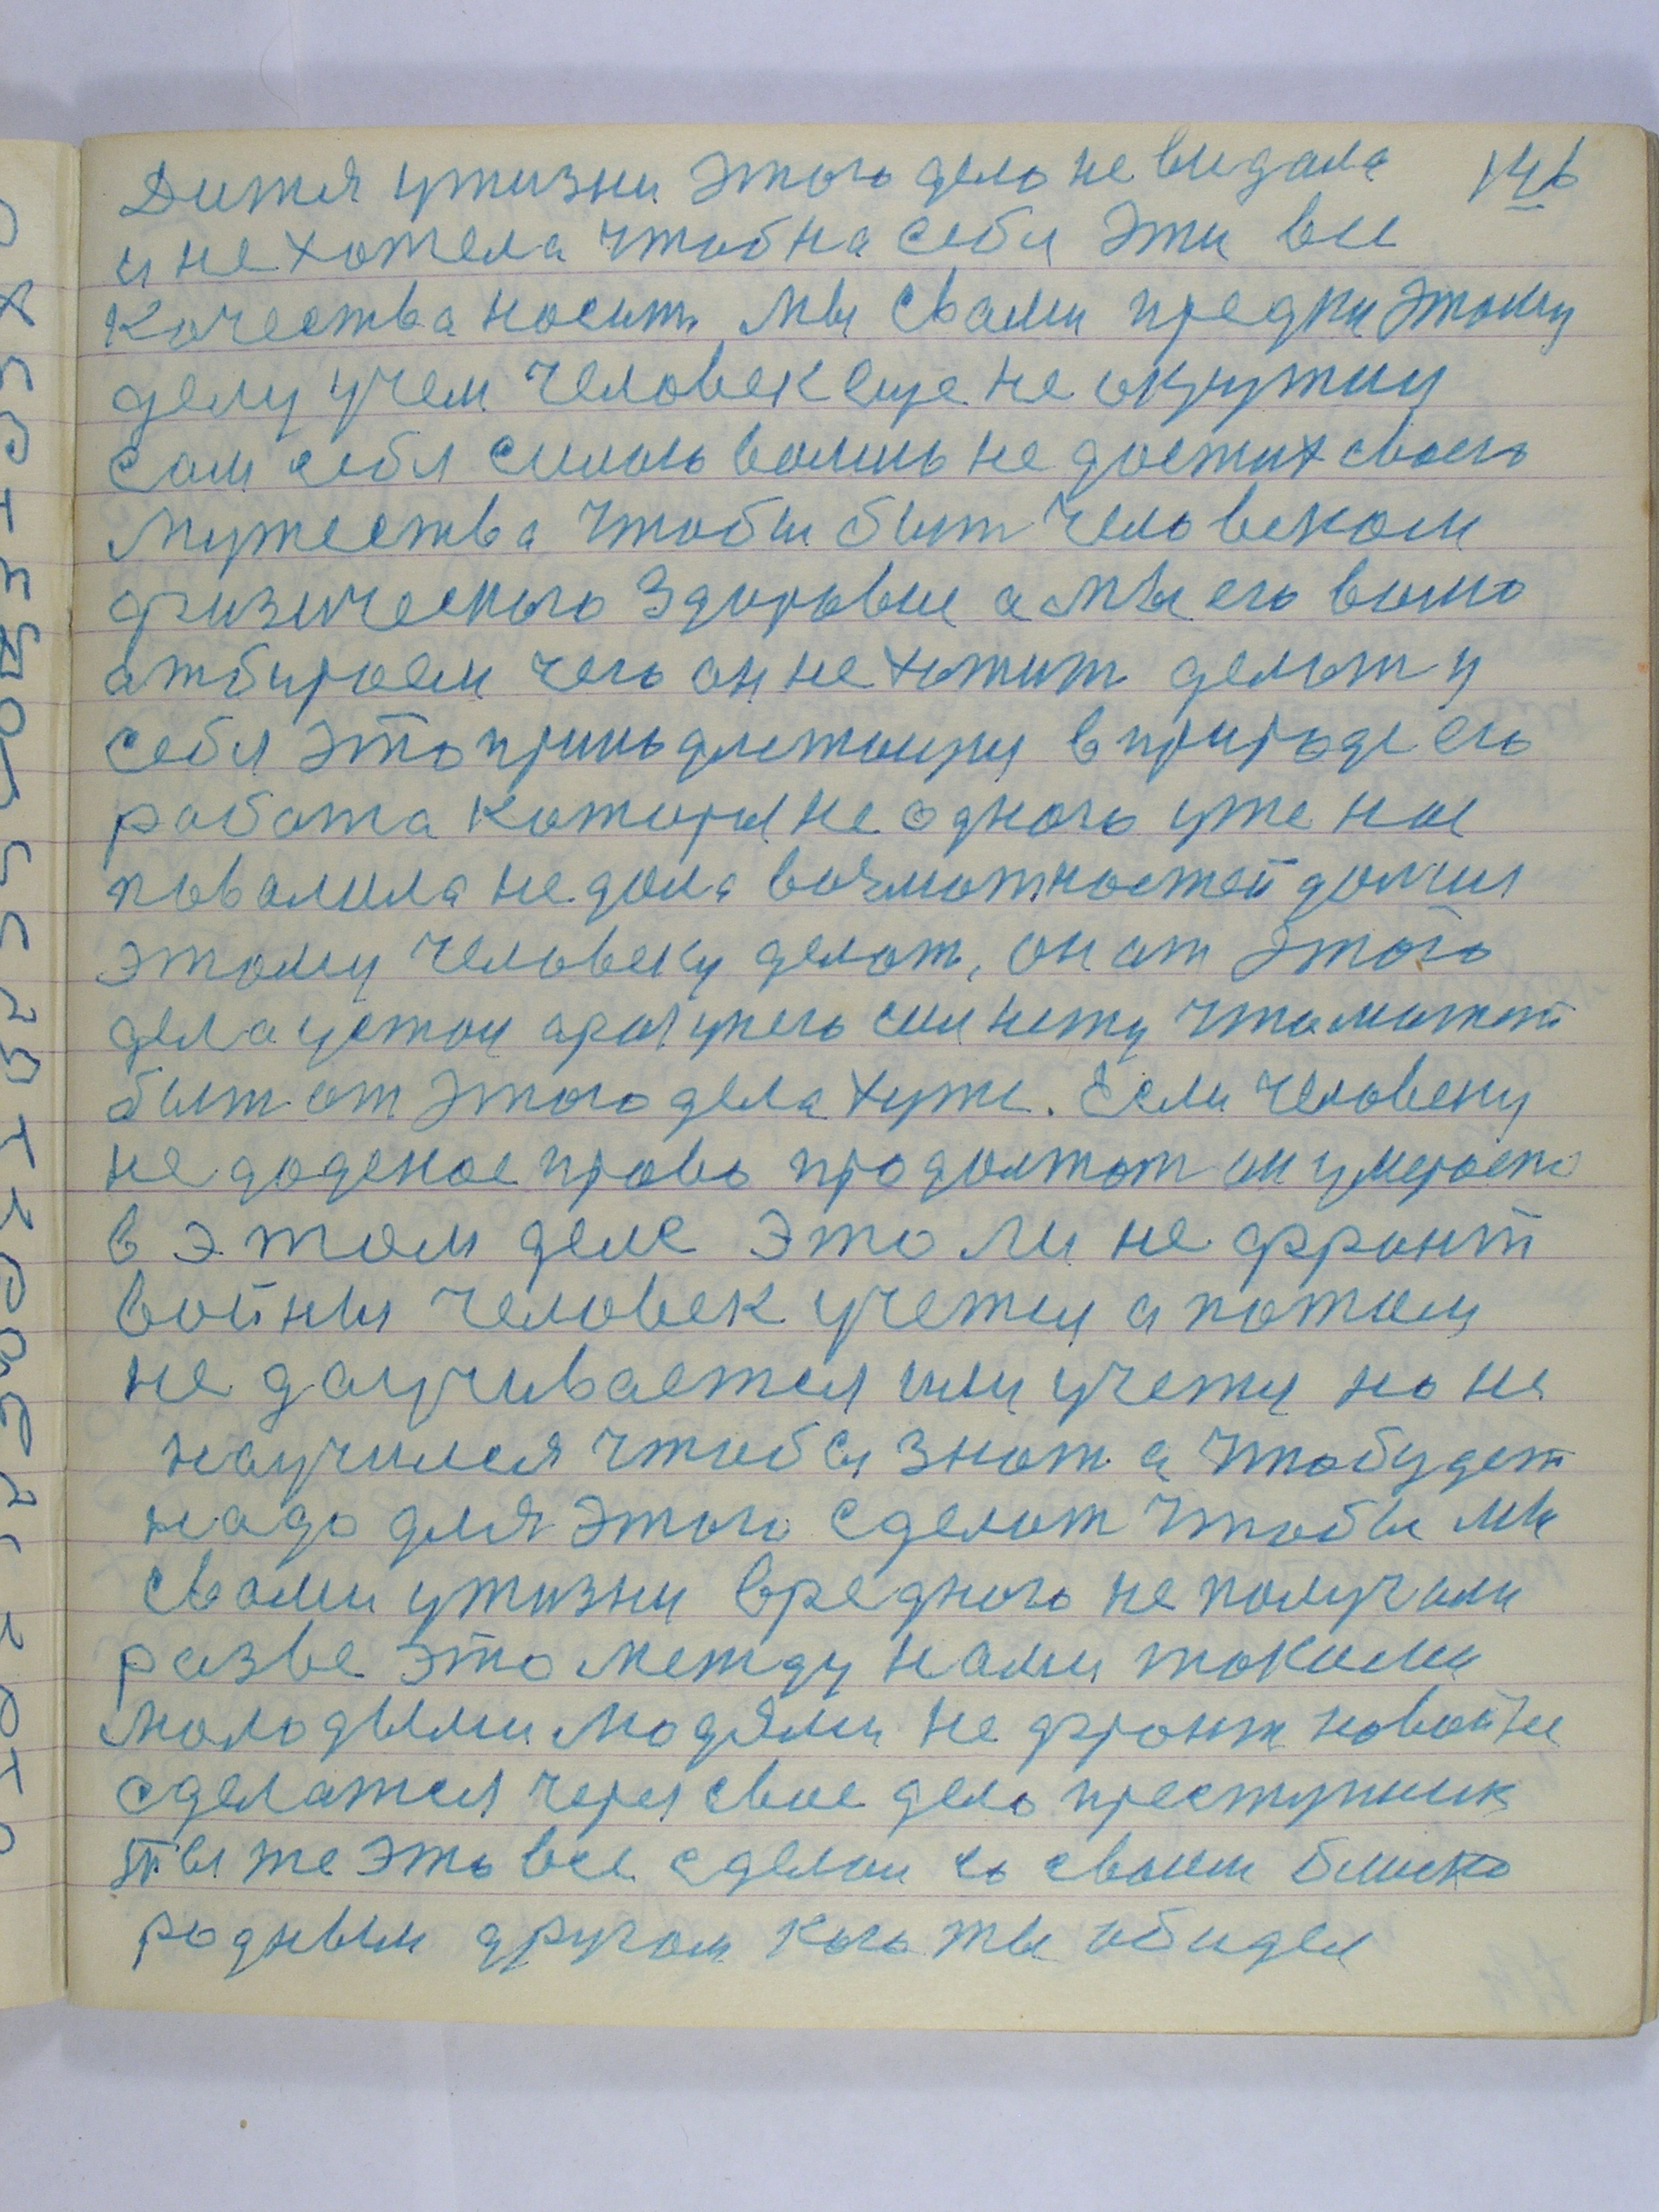 146
Дитя ужизни этого дело не видала
и не хотела чтоб на себя эти все
качества носит мы свами предки этому
делу учем человек еще не окружил
сам себя силою волию не достиг своего
мужества чтобы быт человеком
физического здоровие а мы его волю
атбираем чего он не хотит делат у
себя это принадлежащия в природе его
работа которая не одного уже нас
повалила не дала возможностей далшия
этому человеку делат, он от этого
дела устал араз унего сил нету что может
быт от этого дела хуже. Если человеку
не даденое право продолжат он умирает
в этом деле это ли не фронт
войны человек учется а потом
не даучивается или учетя но не
научился чтобы знат а что будет
надо для этого сделат чтобы мы
свами ужизни вредного не получали
разве это между нами такими
молодыми людями не фронт новойне
сделатся через свое дело преступник
ты же это все сделал со своим близко
родным другом кого ты обидел